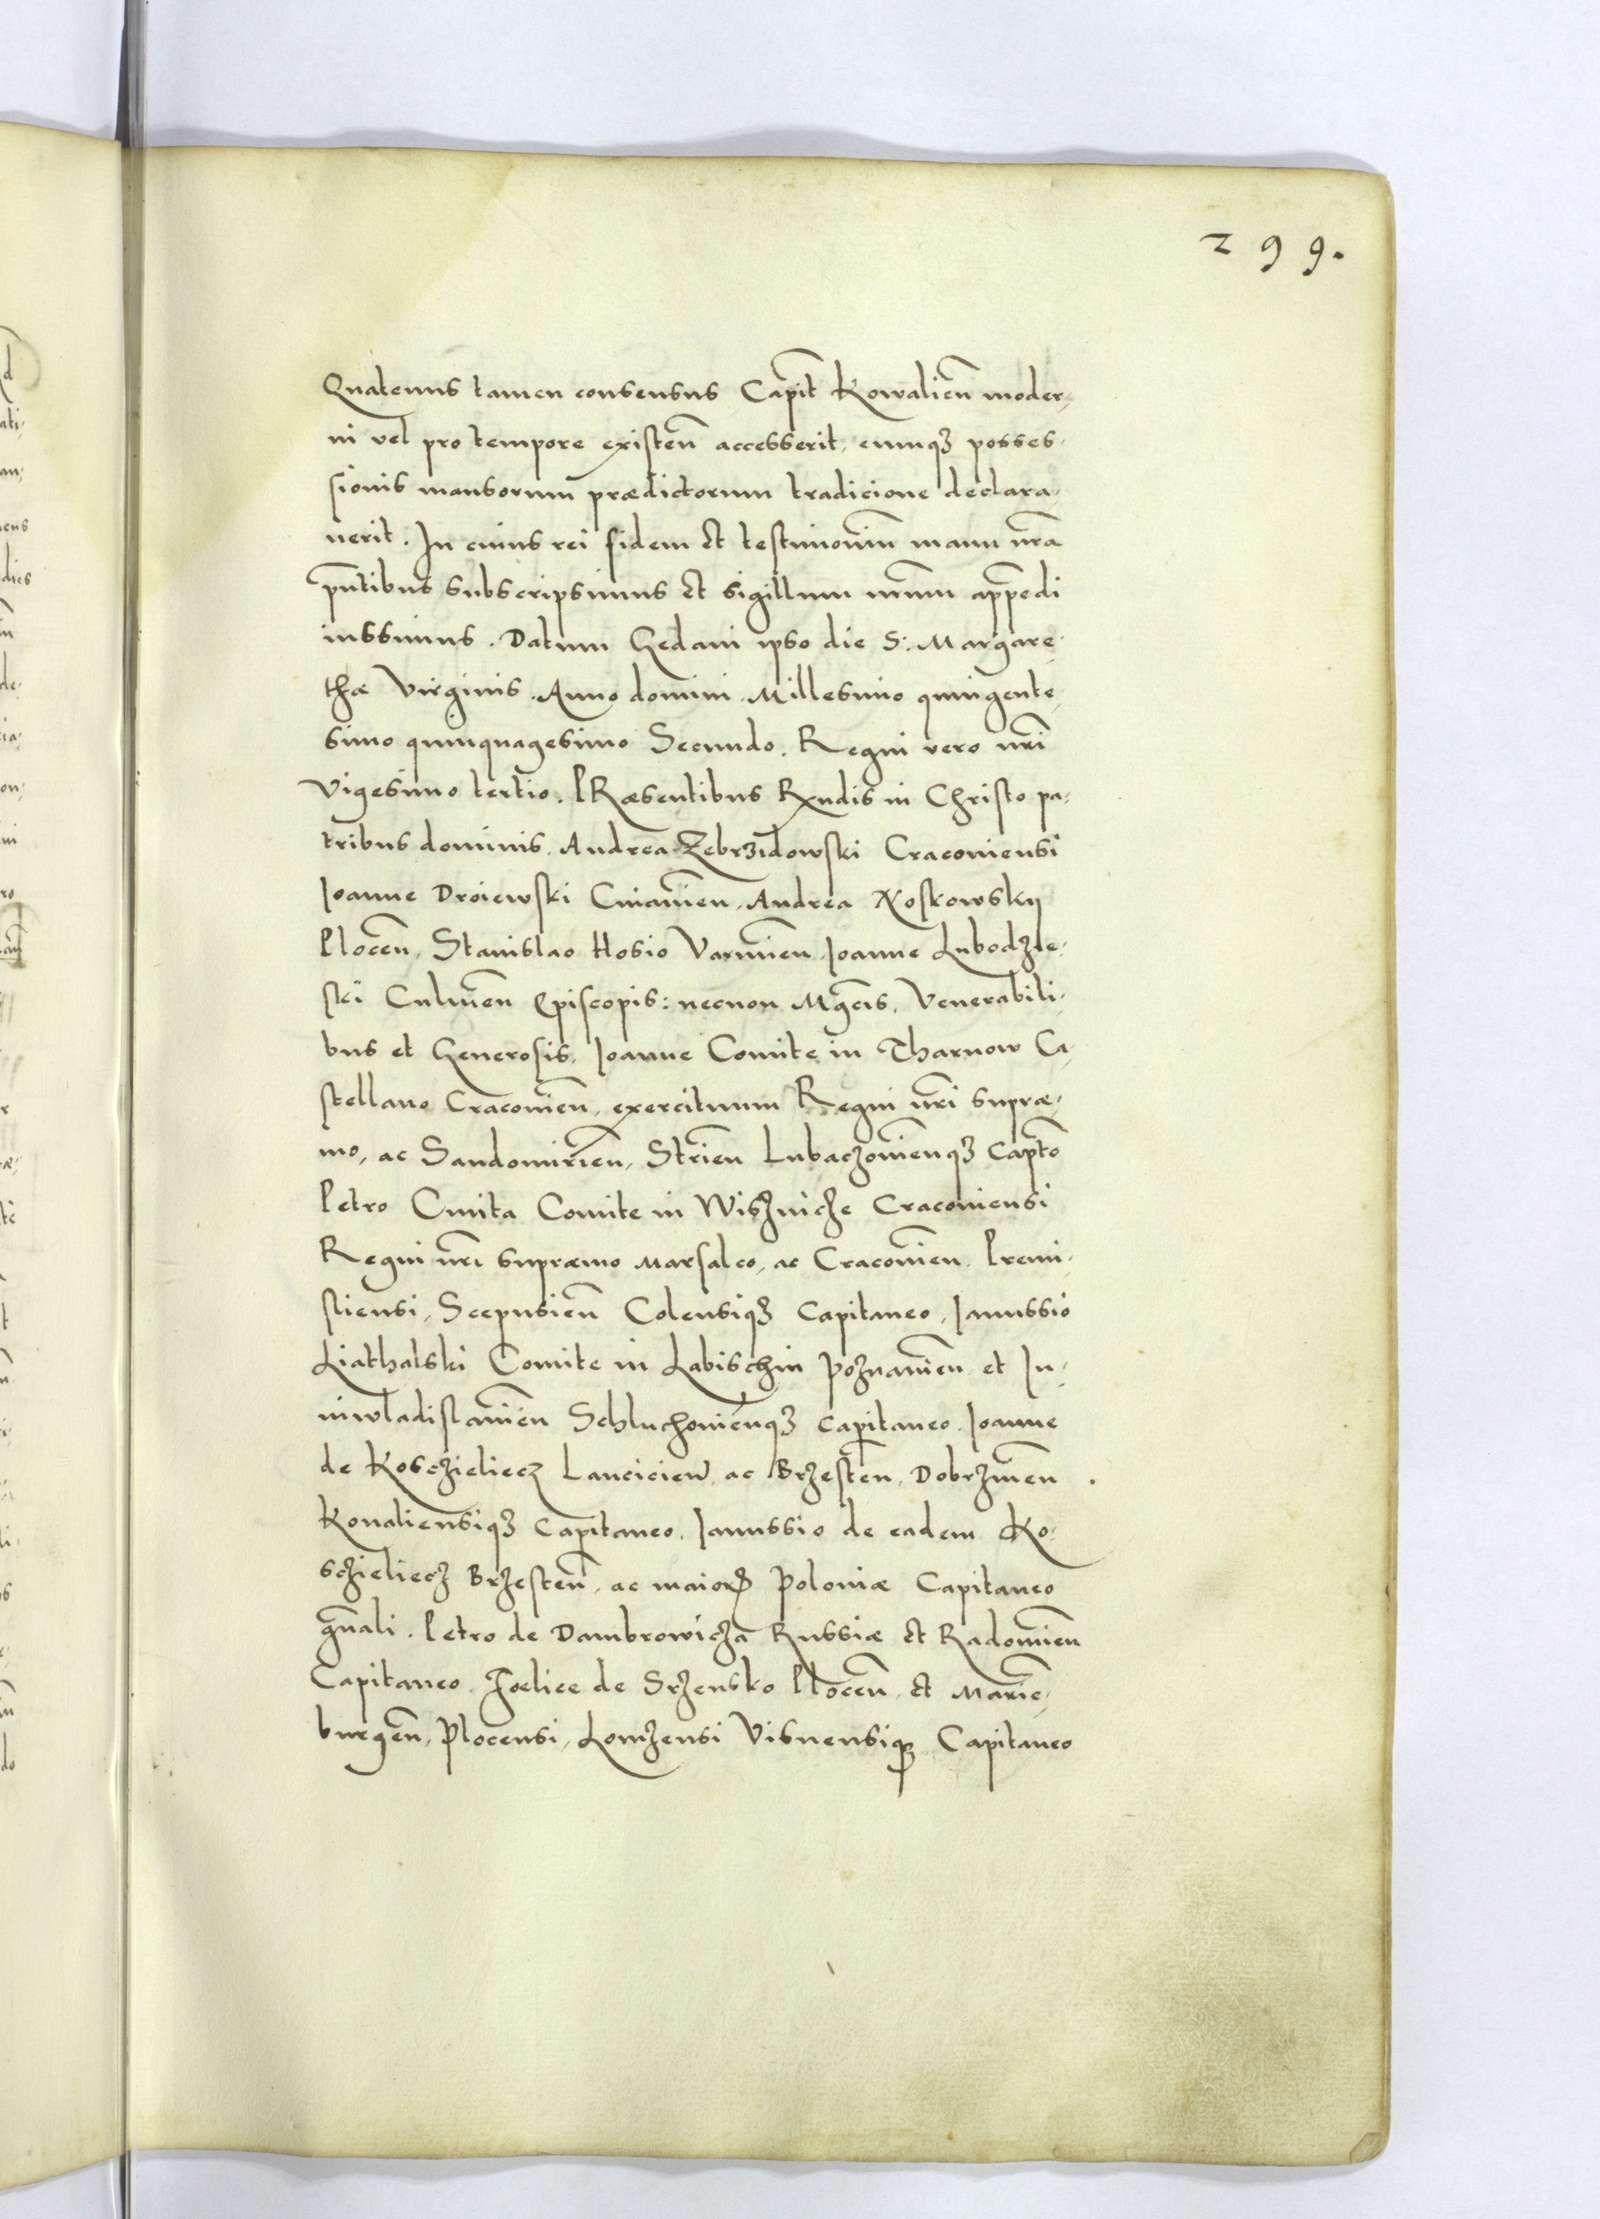 299.
Quatenus tamen consensus Capit͠ Kowalien͠ moder,
ni vel pro tempore existen͠ accesserit, eumqꝫ posses,
sionis mansorum prædictorum tradicione declara,
uerit. In cuius rei fidem et testimoniu͠ manu nr͠a
pn͠tibus subscripsimus et sigillum nr͠um appe͠di
iussimus. Datum Gedani ipso die S: Margare,
thæ Virginis. Anno domini. Millesimo quingente,
simo quinquagesimo Secundo. Regni vero nr͠i
Vigesimo tertio. PRæsentibus Rx͠ndis in Christo pa,
tribus dominis. Andrea Zebrzidowski Craconiensi
Ioanne Droiewski Cuiauien͠. Andrea Noskowskij
Plocen͠, Stanislao Hosio Varmien͠ Ioanne Lubodzie,
ski Culmen͠ Episcopis: necnon Mgc͠is. Venerabili,
bus et Generosis. Ioanne Comite in Tharnow Ca,
stellano Cracouien͠, exercituum Regni nr͠i supræ,
mo, ac Sandomirien͠, Strien͠ Lubaczouien͠qꝫ Capt͠o
Petro Cmita Comite in Wisznicze Cracouiensi
Regni nr͠i supræmo Marsalco, ac Cracouien͠. Premi,
sliensi, Scepusien͠ Colensiqꝫ Capitaneo, Ianussio
Liathalski Comite in Labischin Poznanien͠ et Iu,
niwladislauien͠ Schluchouien͠qꝫ Capitaneo. Ioanne
de Kosczieliecz Lancicien͠ ac Brzesten͠. Dobrzinen͠
Koualiensiqꝫ Capitaneo. Ianussio de eadem Ko,
sczieliecz Brzesten͠. ac maioris Poloniæ Capitaneo
gn͠ali. Petro de Dambrowicza Russiæ et Radomien͠
Capitaneo. Foelice de Srzensko Plocen͠. et Marie͠,
burgen͠, Plocensi, Lomzensi Visnensiqꝫ Capitaneo